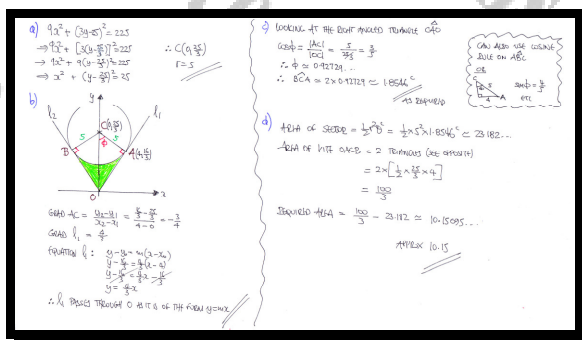 a) 9x² + (3y-25)² = 225
⇒ 9x² + [3(y-25/3)]² = 225
⇒ 9x² + 9(y-25/3)² = 225
⇒ x² + (y-25/3)² = 25
∴ C(0,25/3)
r=5
b)
y
l₂
l₁
C(0,25/3)
5
5
φ
B
A(4,16/3)
O
x
GRAD AC = y₂-y₁/x₂-x₁ = 16/3-25/3/4-0 = -3/4
GRAD l₁ = 4/3
EQUATION l₁: y-y₀=m(x-x₀)
y-16/3=4/3(x-4)
y-16/3=4/3x-16/3
y=4/3x
∴ l₁ PASSES THROUGH O AS IT IS OF THE FORM y=mx
c) LOOKING AT THE RIGHT ANGLED TRIANGLE CAO
cosφ = |AC|/|OC| = 5/25/3 = 3/5
∴ φ ≃ 0.92729...
∴ BCA ≃ 2×0.92729 ≃ 1.8546ᶜ
AS REQUIRED
CAN ALSO USE COSINE
RULE ON ABC
OR
C
5
4
A
ETC
d) AREA OF SECTOR = ½r²θ = ½×5²×1.8546ᶜ ≃ 23.182...
AREA OF KITE OACB = 2 TRIANGLES (SEE OPPOSITE)
= 2×[½×25/3×4]
= 100/3
REQUIRED AREA = 100/3 - 23.182 ≃ 10.15095...
APPROX 10.15